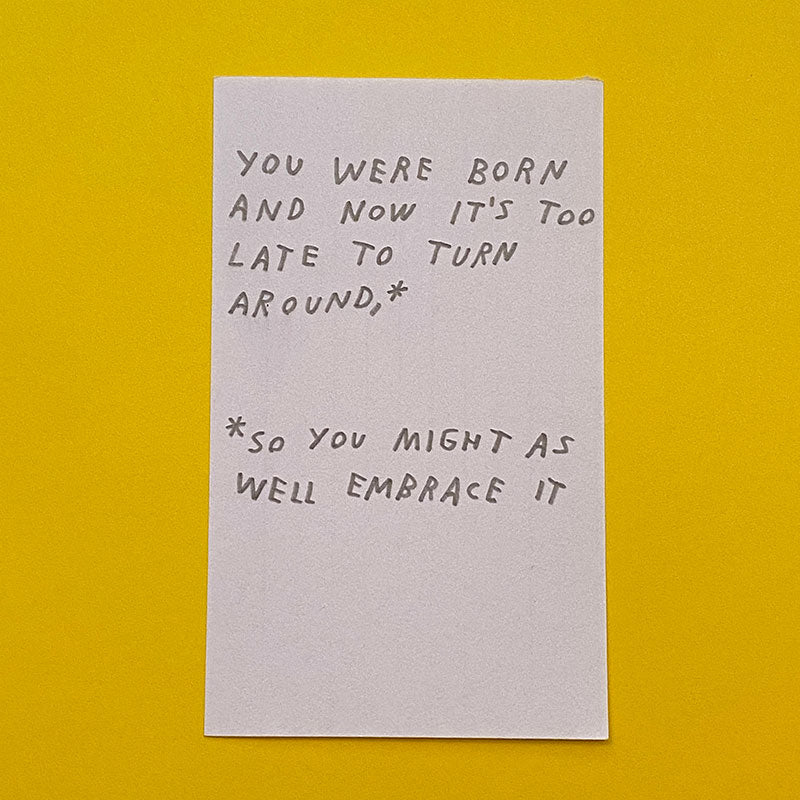 YOU WERE BORN
AND NOW IT'S TOO
LATE TO TURN
AROUND,*
*SO YOU MIGHT AS
WELL EMBRACE IT